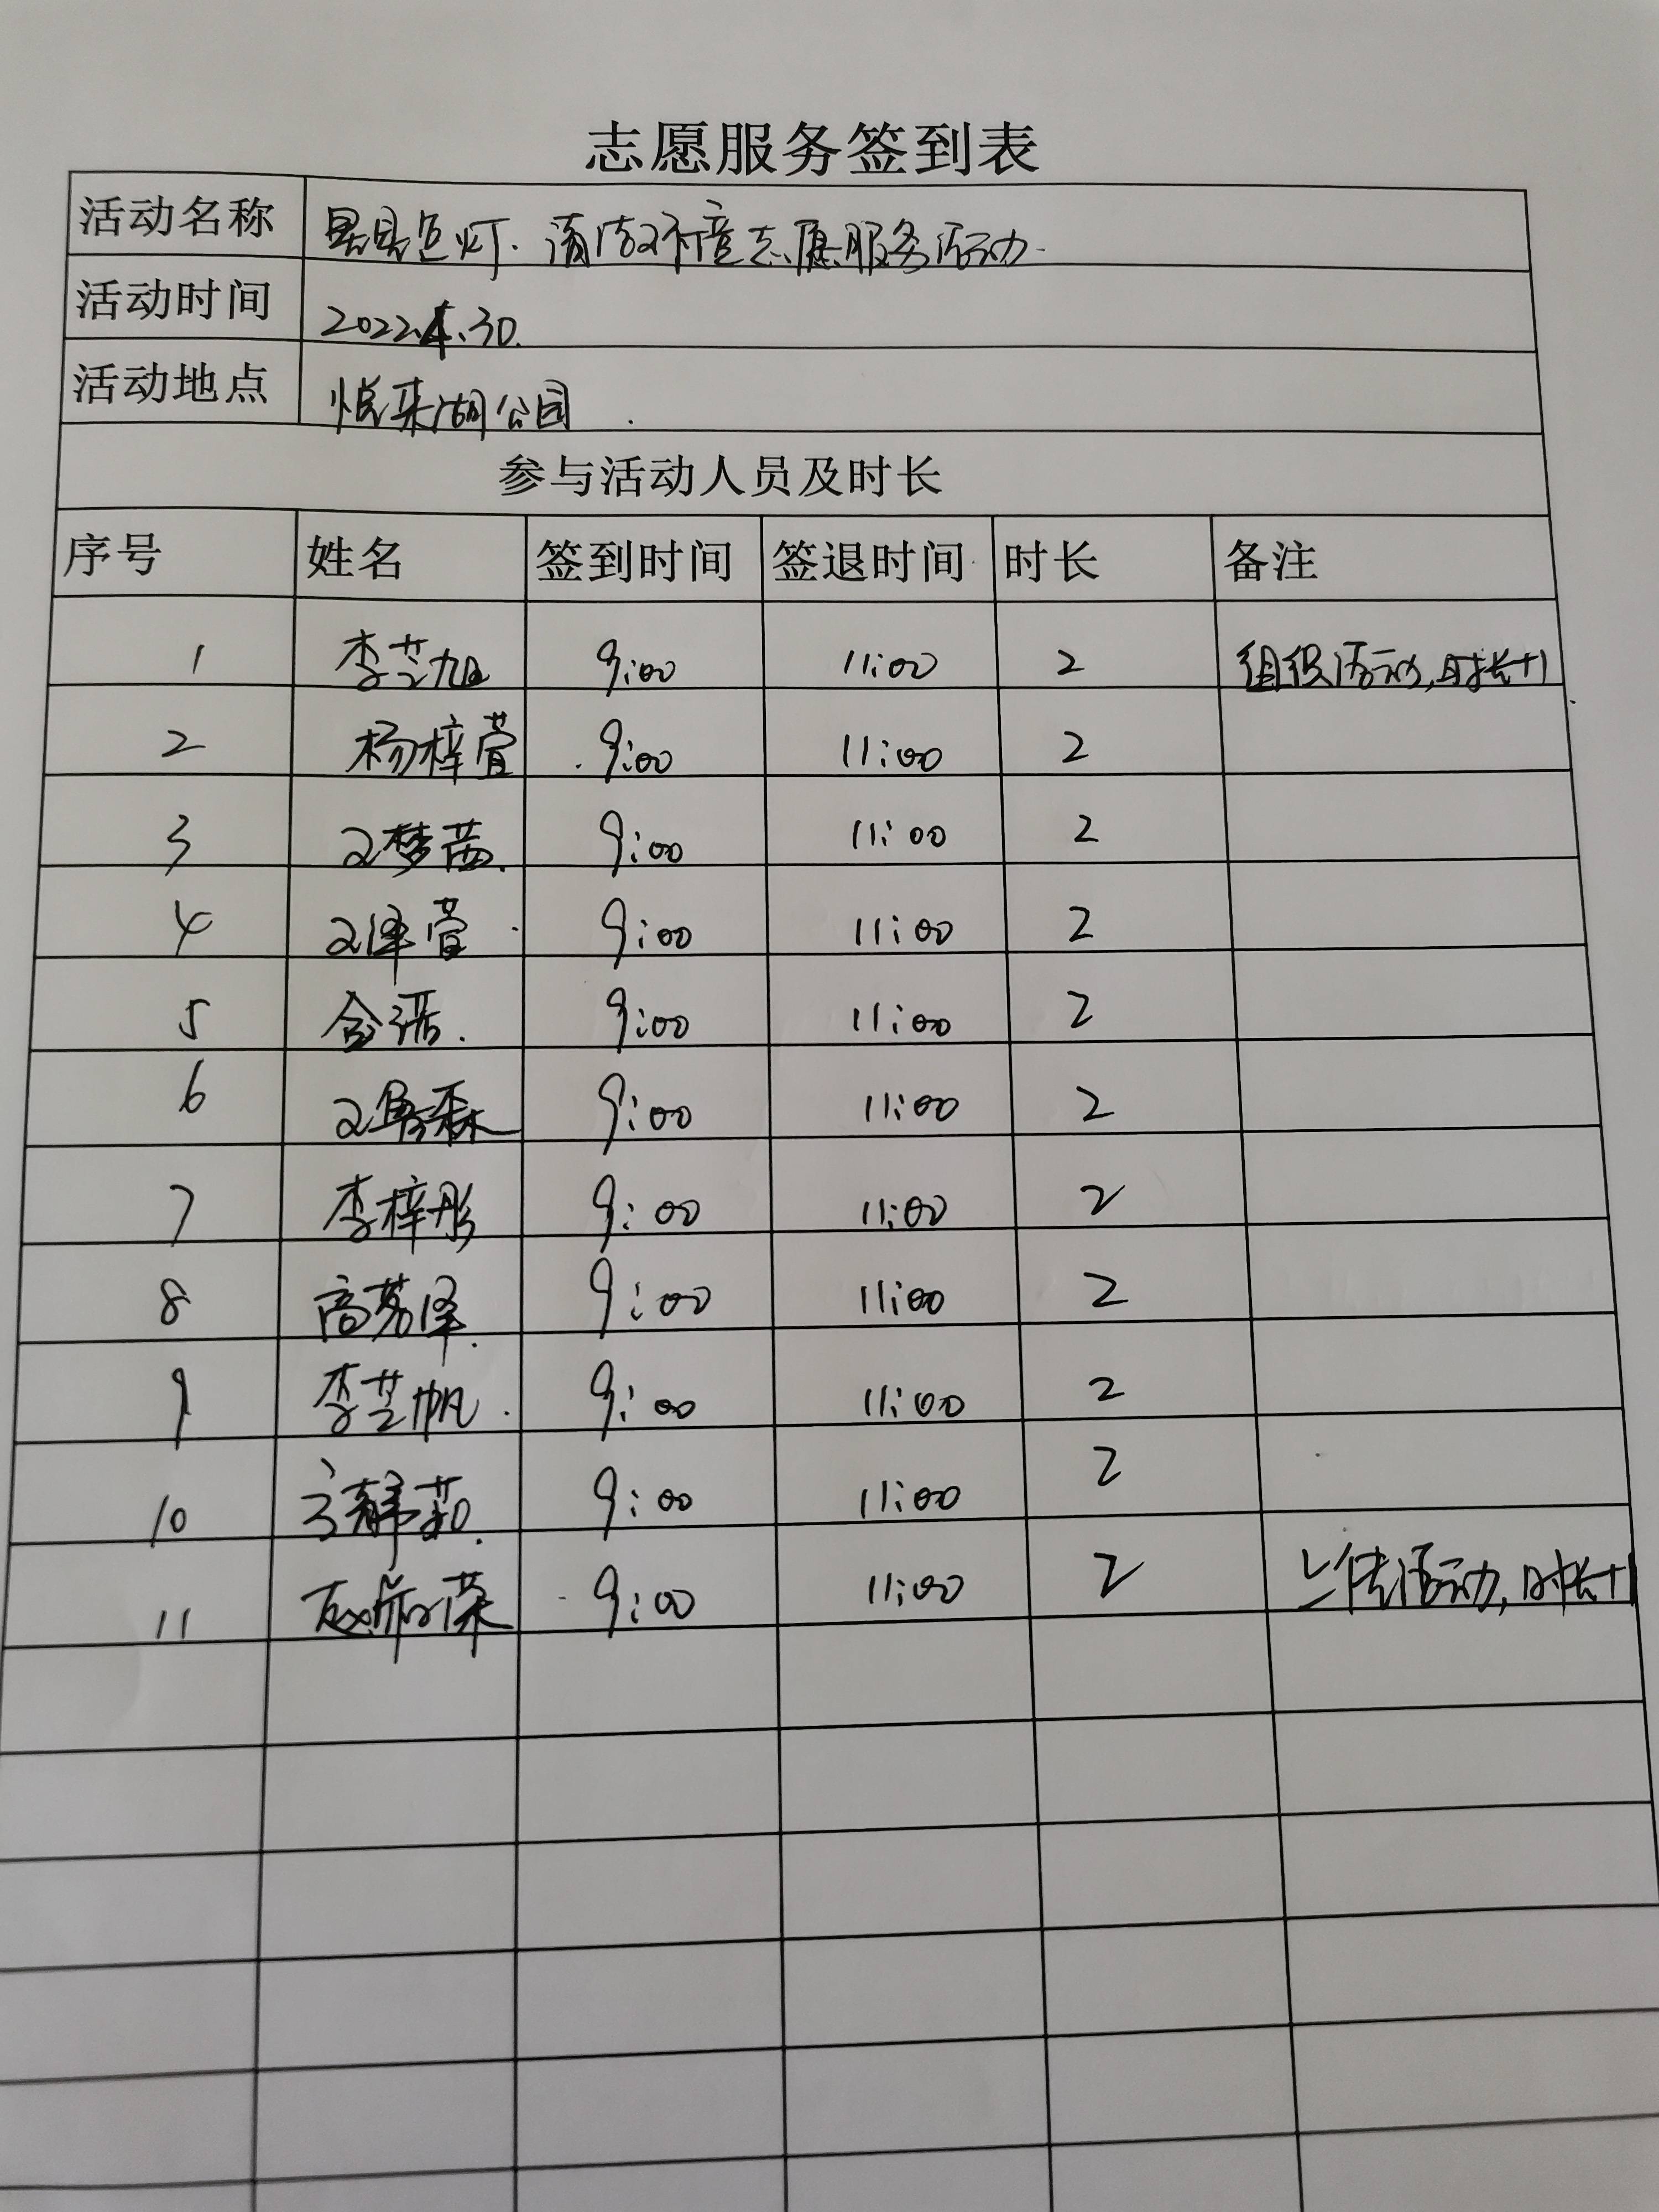 志愿服务签到表
活动名称 志愿服务活动
活动时间 2022.4.30.
活动地点 悦来湖公园
参与活动人员及时长
序号 姓名 签到时间 签退时间 时长 备注
1 李芝旭 9:00 11:00 2 组织活动,时长+1
2 杨梓萱 9:00 11:00 2
3 梦茜 9:00 11:00 2
4 泽萱 9:00 11:00 2
5 9:00 11:00 2
6 9:00 11:00 2
7 李梓彤 9:00 11:00 2
8 高茗泽 9:00 11:00 2
9 李芝帆 9:00 11:00 2
10 9:00 11:00 2
11 9:00 11:00 2 上传活动,时长+1